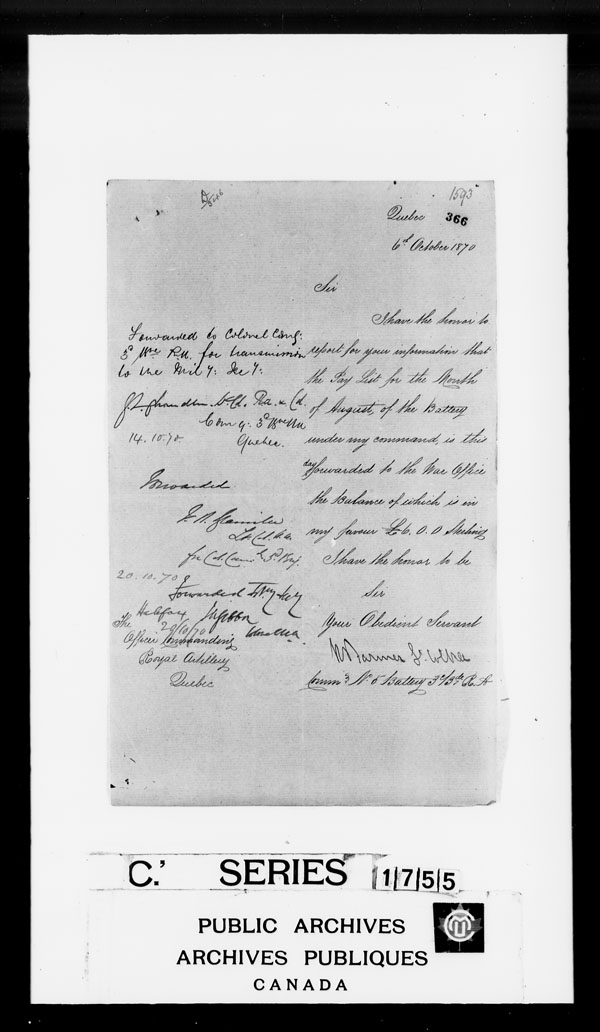 1593
Quebec 366
6th October 1870
Sir
I have the honor to
report for your information that
the Pay List for the Month
of August, of the Battery
under my command, is this
day forwarded to the War Office
the Balance of which is in
my favour £6.0.0 Sterling
I have the honor to be
Sir
Your Obedient Servant
Comm^g No 5 Battery 3d B^de R.A
Forwarded to Colonel Com^g:
3d B^de R.A. for transmission
to the Mil^y: Sec^y:
Quebec.
14.10.70
Forwarded
20.10.70
Forwarded
Halifax
20/10/70
The
Officer Commanding
Royal Artillery
Quebec
C.' SERIES 1755
PUBLIC ARCHIVES
ARCHIVES PUBLIQUES
CANADA